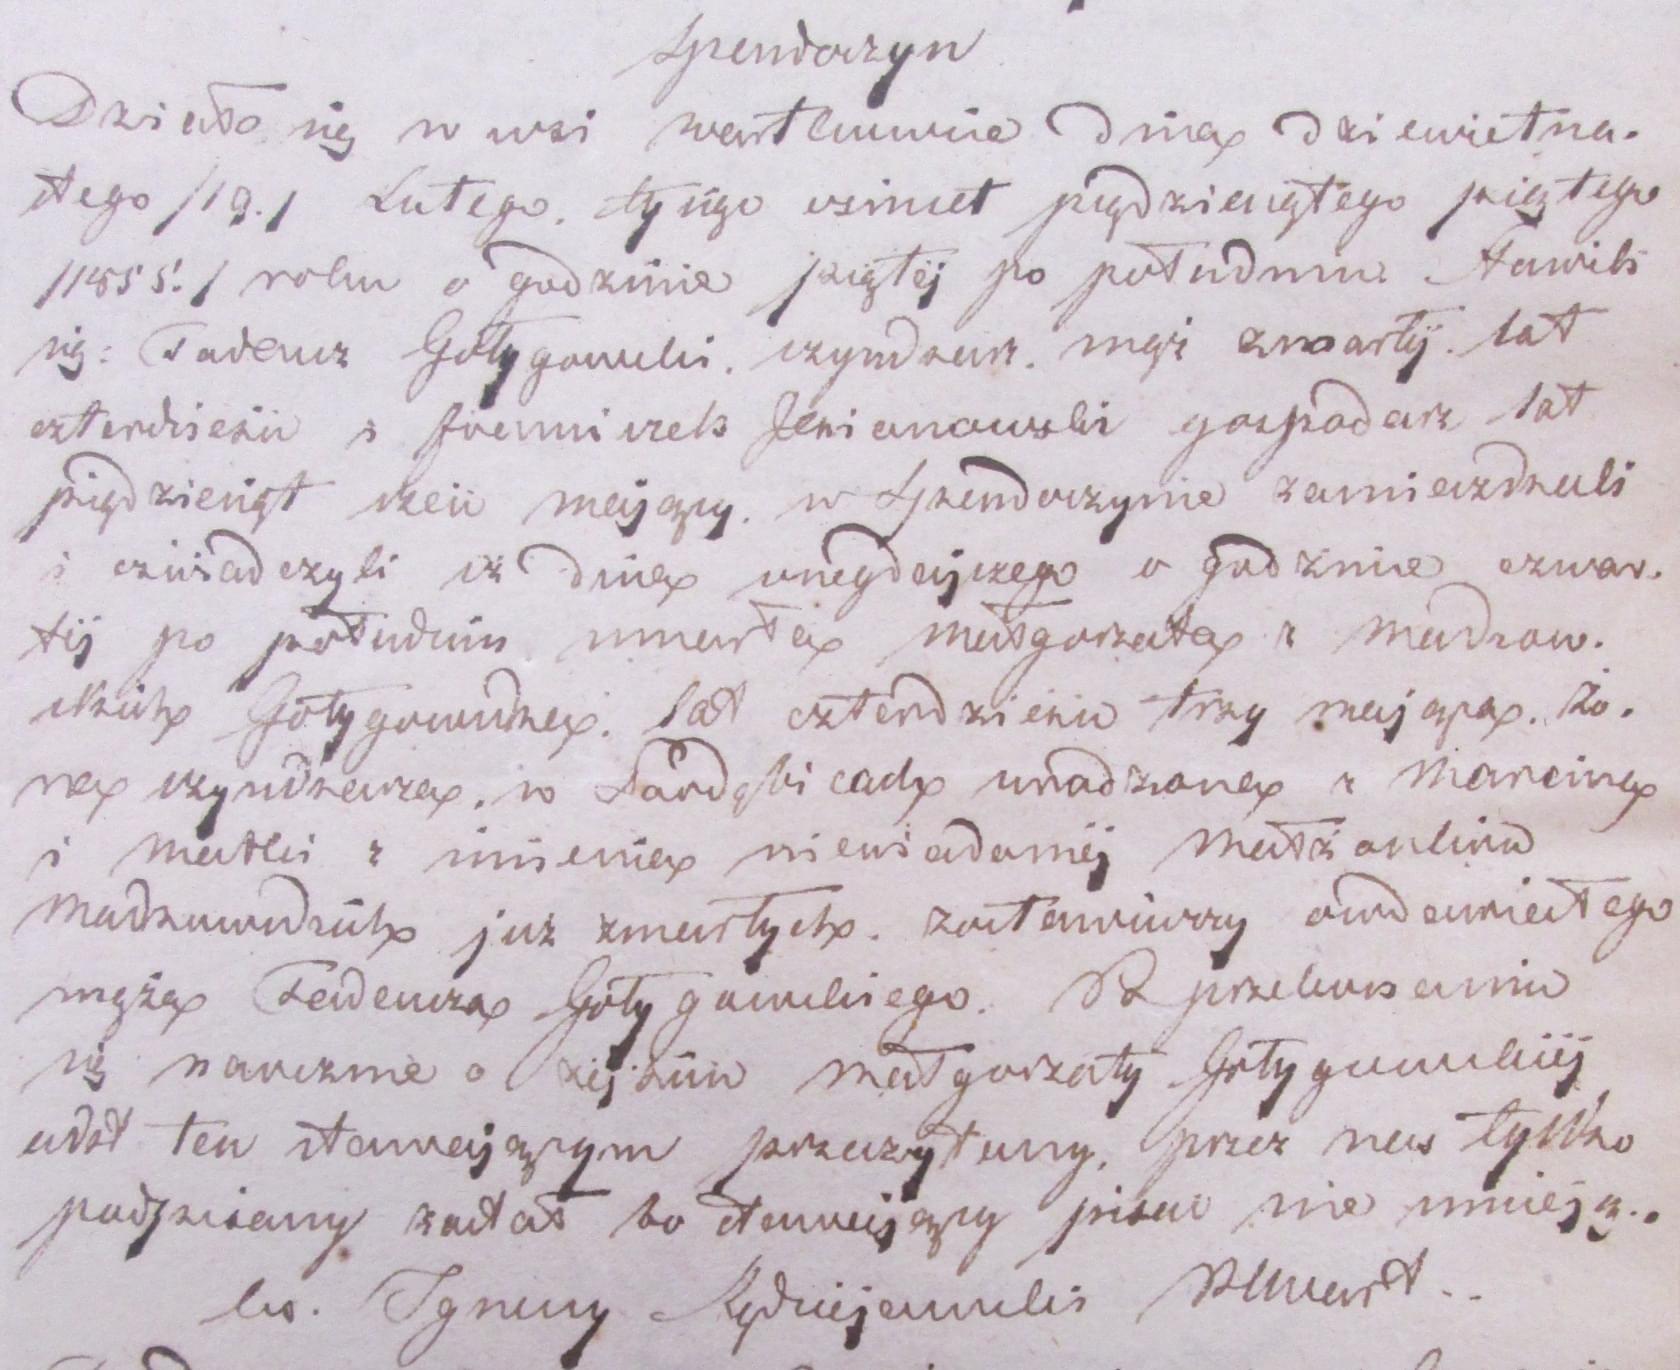 Spendoszyn
Działo się w wsi Wartkowie dnia dziewietna.
stego /19./ Lutego. tysiąc osimset piędziesiątego piątego
/1855./ roku o godzinie piątéj po południu. Stawili
się: Tadeusz Gołygowski. czynszar. mąż zmarłéj. lat
czterdzieści i Franciszek Jezianowski gospodarz lat
piędziesiąt sześć mający. w Spendoszynie zamieszkali
i oświadczyli iż dnia onegdajszego o godzinie czwar.
téj po południu umarła Małgorzata z Madzow.
skich Gołygowska. lat czterdzieści trzy mająca. żo.
na czynszarza. w urodzona z Marcina
i Matki z imienia niewiadoméj Małżonków
Madzowskich już zmarłych. zostawiwszy owdowiałego
męża Tadeusza Gołygowskiego. Po przekonaniu
się naocznie o zejściu Małgorzaty Gołygowskiéj
akt ten stawającym przeczytany. przez nas tylko
podpisany został bo stawający pisać nie umieją..
ks. Ignacy